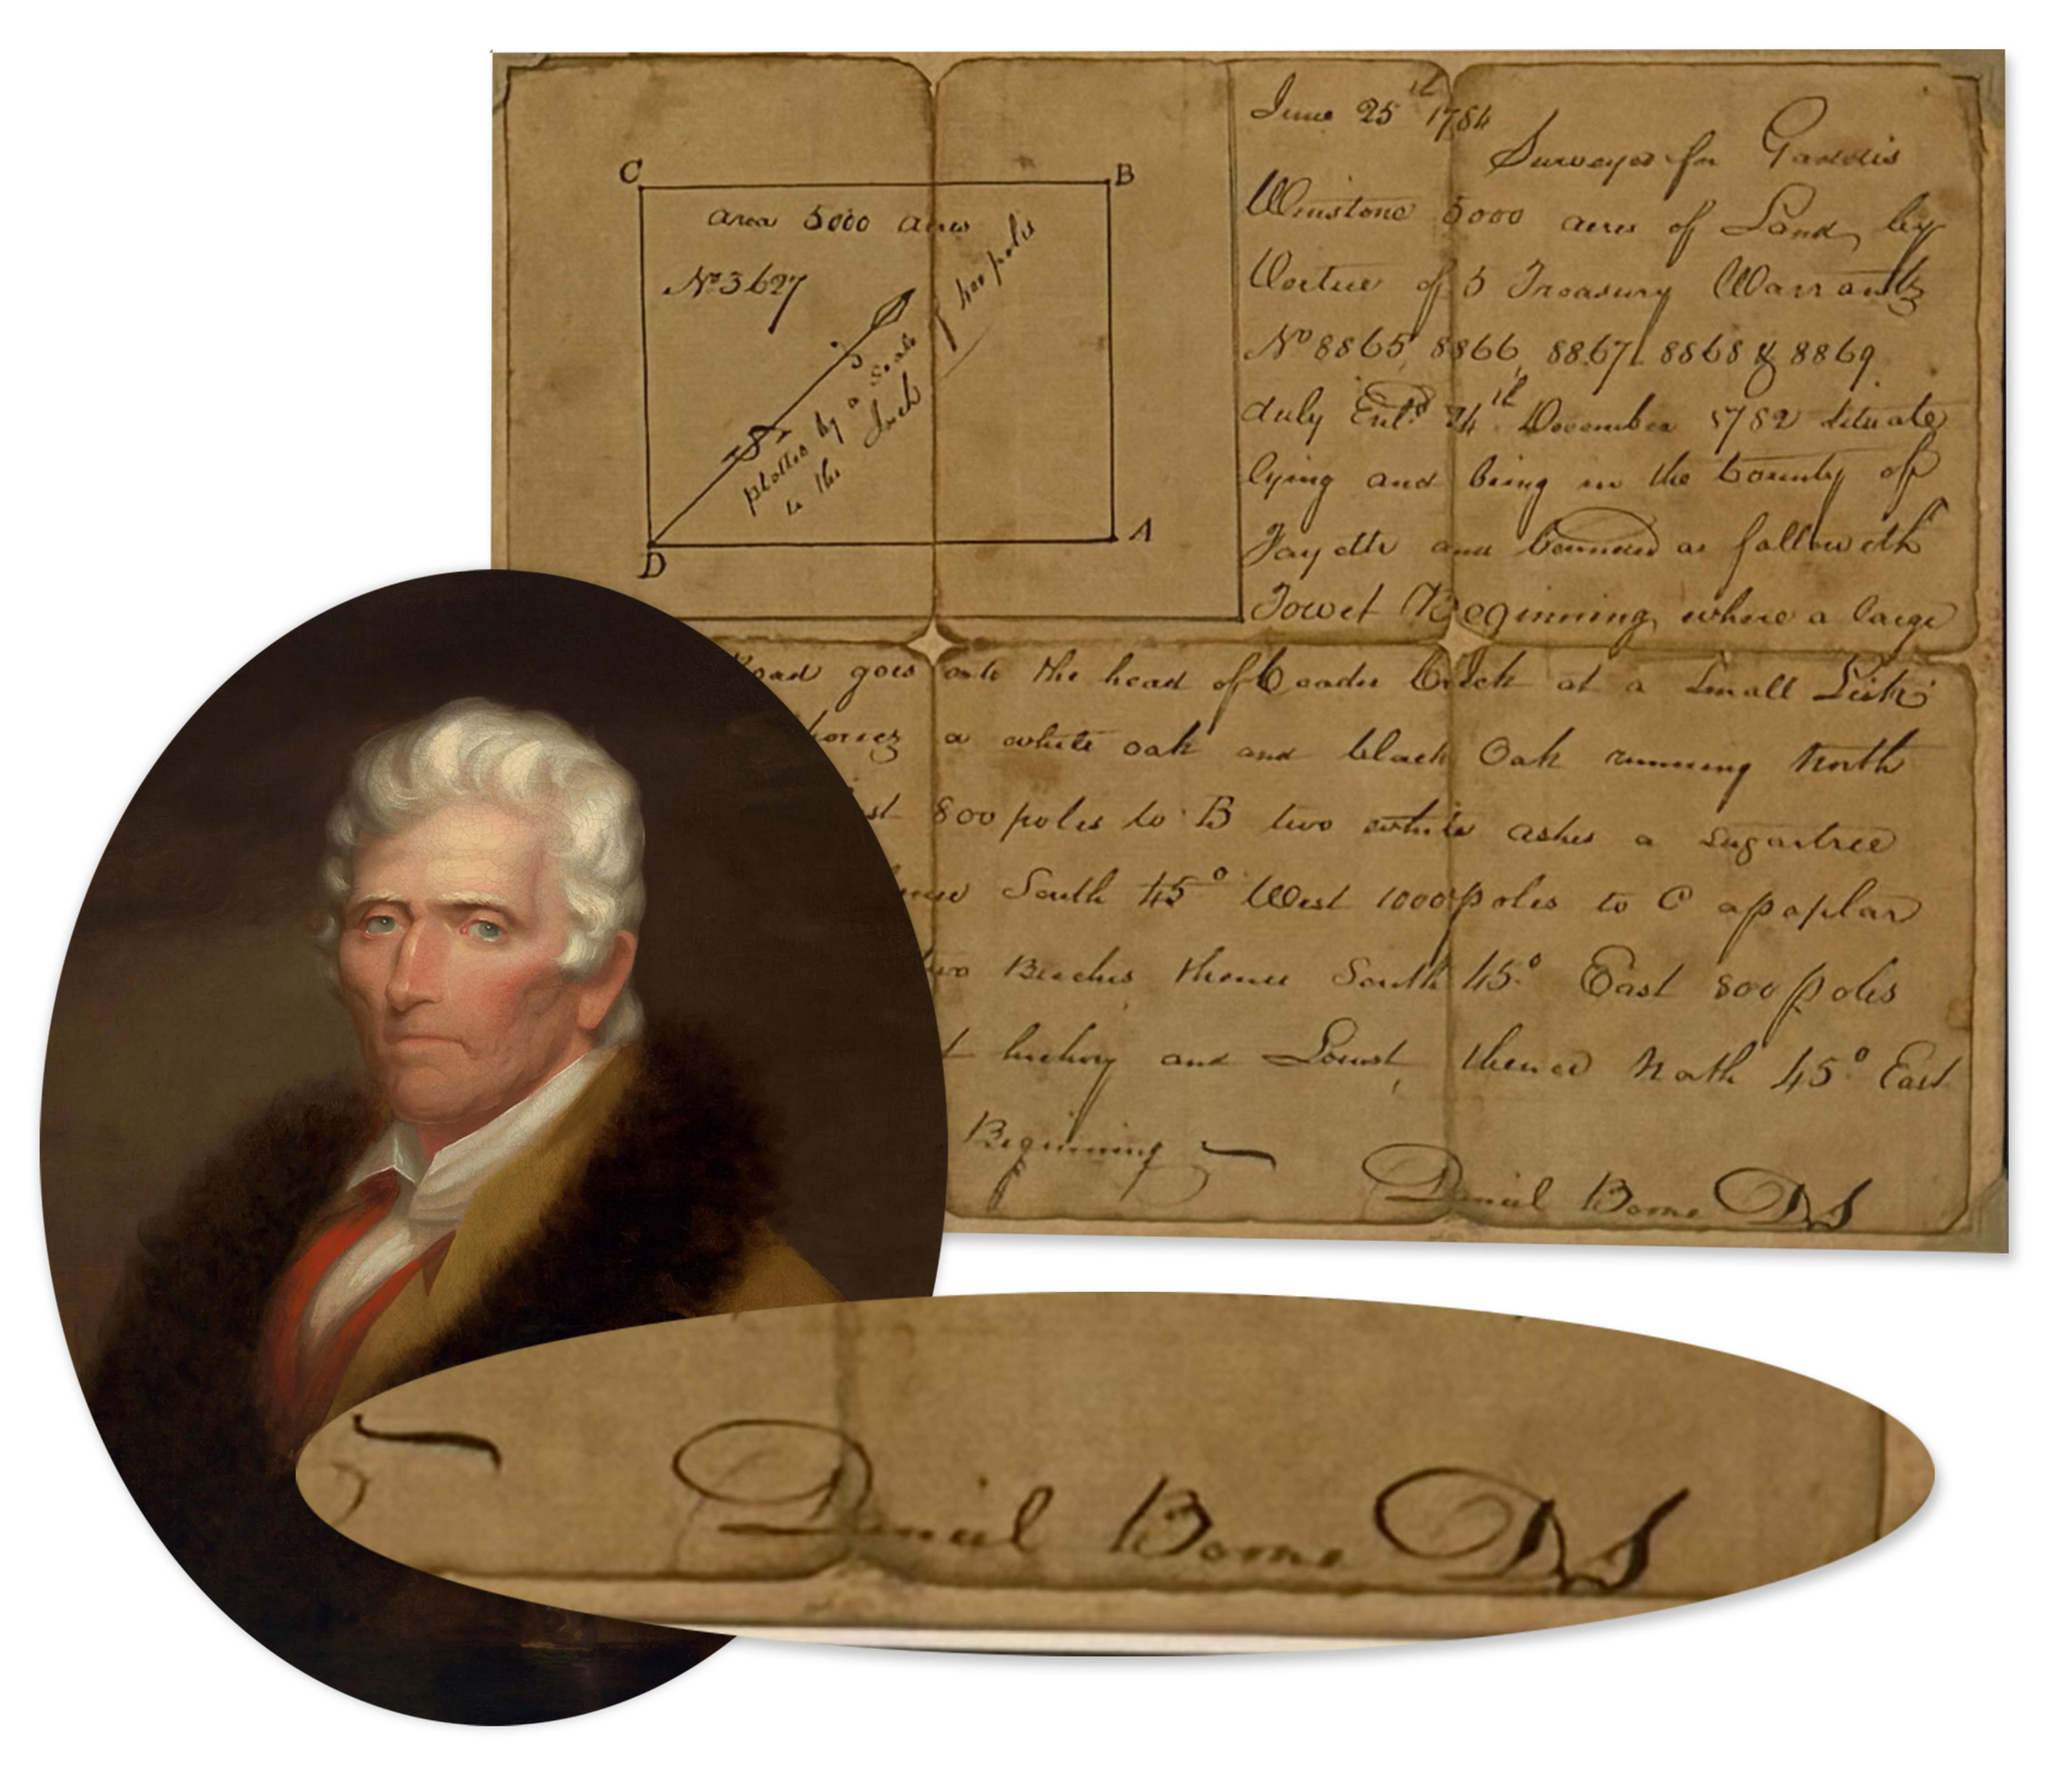 C
B
area 5000 acres
No 3627
plotted by a Scale
400 poles
to the Inch
A
D
June 25th 1784
Surveyed for Gaddis
Winstone 5000 acres of Land by
Vertue of 5 Treasury Warrants
No 8865, 8866, 8867, 8868 & 8869
duly Entd 24th December 1782 Situate
lying and being in the County of
Fayette and bounded as followeth
Towit Beginning where a large
Road goes onto the head of Ceader Creek at a Small Lick
a white oak and black Oak running North
800 poles to B two white ashes a sugartree
South 45° West 1000 poles to C a poplar
two Beeches thence South 45° East 800 poles
hickory and Locust, thence North 45° East
Beginning
Daniel Boone DS
Daniel Boone DS